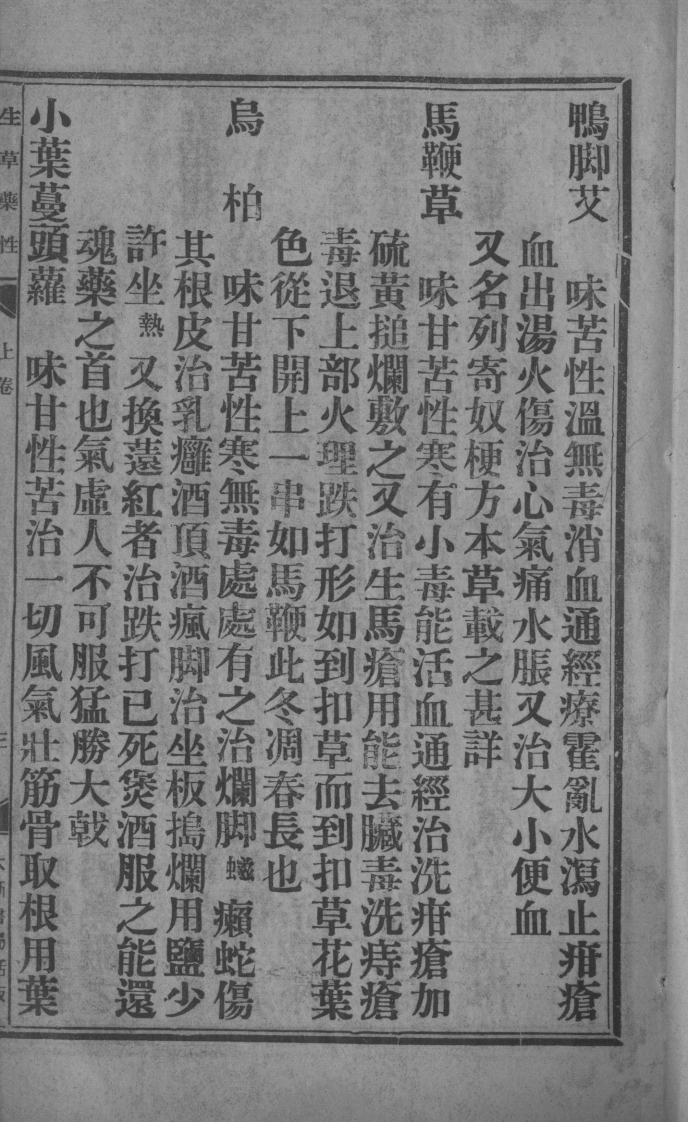 鴨脚艾　味苦性溫無毒消血通經療霍亂水瀉止疳瘡
血出湯火傷治心氣痛水脹又治大小便血
又名列寄奴梗方本草載之甚詳
馬鞭草　味甘苦性寒有小毒能活血通經治洗疳瘡加
硫黃搥爛敷之又治生馬瘡用能去臟毒洗痔瘡
毒退上部火理跌打形如到扣草而到扣草花葉
色從下開上一串如馬鞭此冬凋春長也
烏桕　味甘苦性寒無毒處處有之治爛脚癩蛇傷
其根皮治乳癰酒頂酒瘋脚治坐板搗爛用鹽少
許坐熱又換薳紅者治跌打已死煲酒服之能還
魂藥之首也氣虛人不可服猛勝大戟
小葉蔓頭蘿　味甘性苦治一切風氣壯筋骨取根用葉
生草藥性　上卷　三